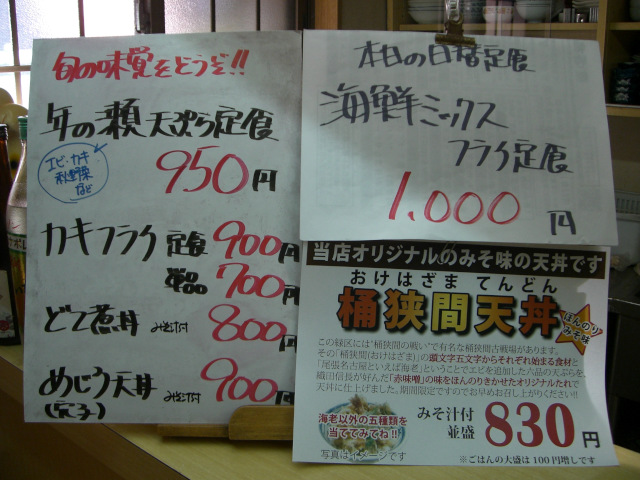 旬の味覚をどうぞ!!
年の瀬天ぷら定食
エビ・カキ
など
950円
カキフライ 定食 900円
単品 700円
どて煮丼 みそ汁付 800円
めじろ天丼 みそ汁付 900円
(穴子)
本日の日替定食
海鮮ミックス
フライ定食
1,000円
当店オリジナルのみそ味の天丼です
おけはざま てんどん
桶狭間天丼
ほんのり
みそ味
この緑区には"桶狭間の戦い"で有名な桶狭間古戦場があります。
その「桶狭間(おけはざま)」の頭文字五文字からそれぞれ始まる食材と
「尾張名古屋といえば海老」ということでエビを追加した六品の天ぷらを、
織田信長が好んだ「赤味噌」の味をほんのりきかせたオリジナルたれで
天丼に仕上げました。期間限定ですのでお早めお召し上がりください!!
海老以外の五種類を
当ててみてね!!
写真はイメージです
みそ汁付
並盛 830円
※ごはんの大盛は100円増しです